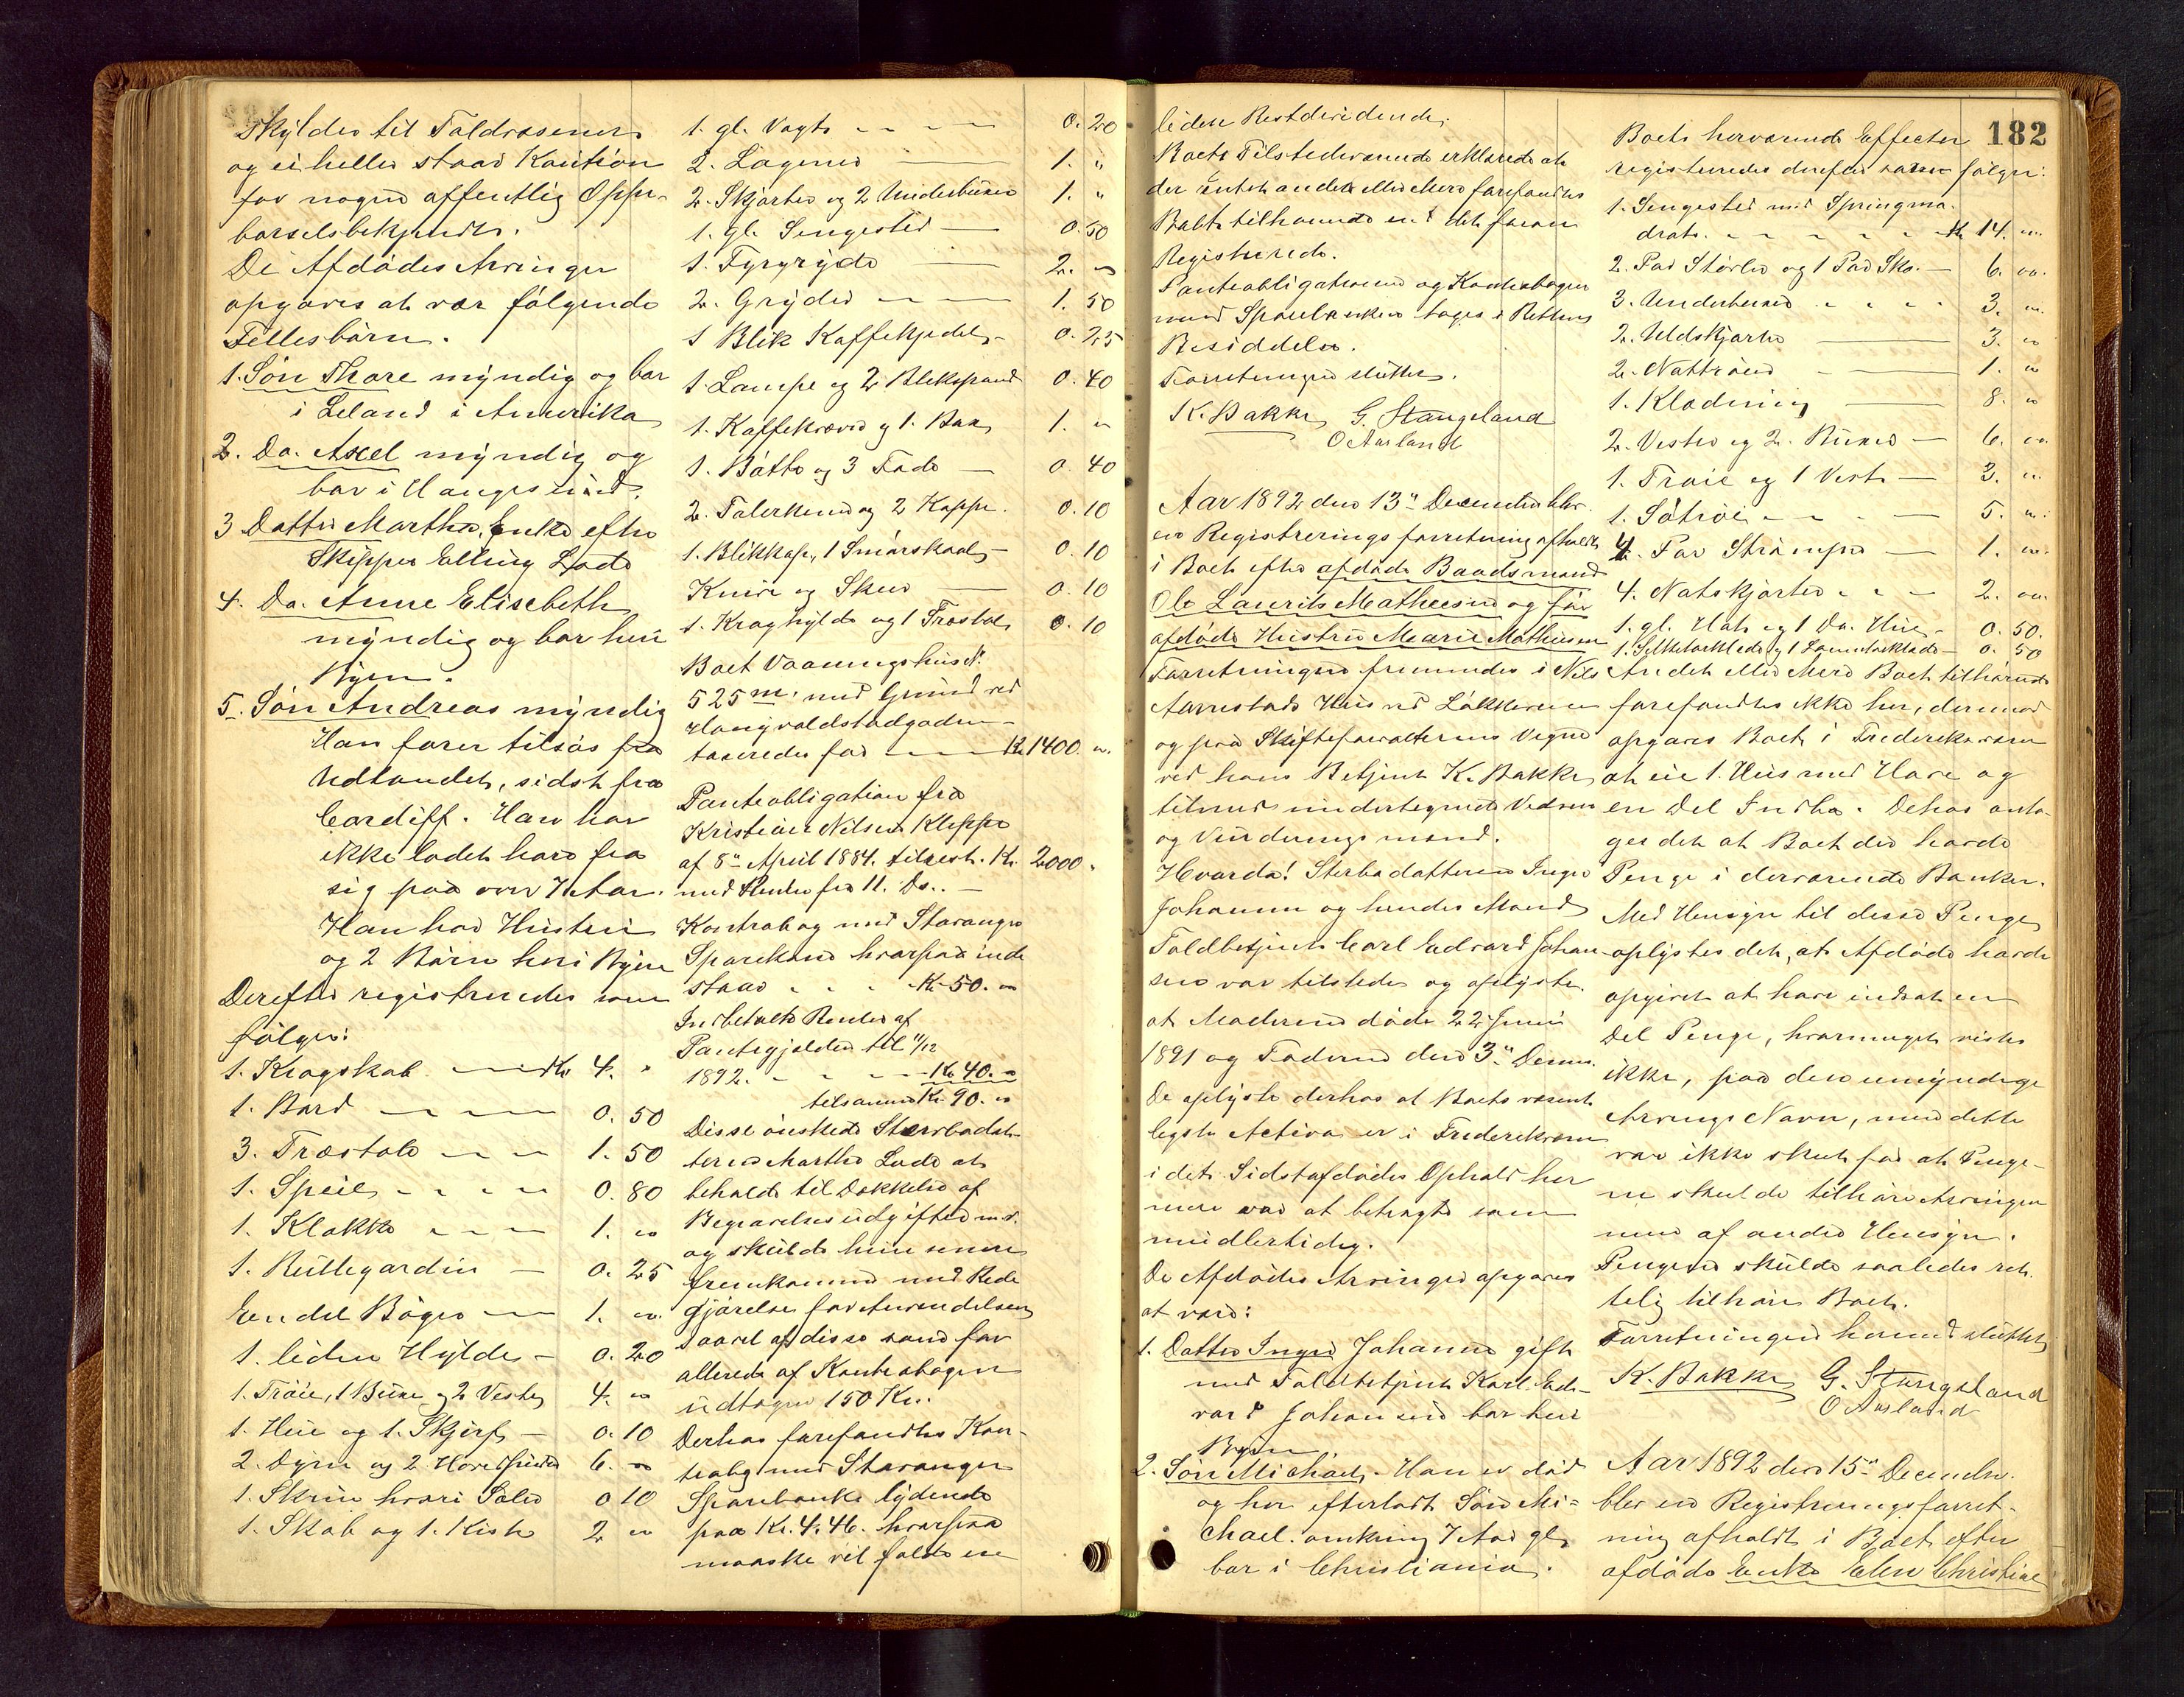 Skylder til Toldvæsenet
og ei heller staar Kaution
for nogen offentlig Oppe-
børselsbetjent.
De Afdødes Arvinger
opgaves at vær følgende
Fellesbørn.
1. Søn Thore myndig og bor
i Leland i Amerika
2. Do. Axel myndig og
bor i Haugesund.
3 Datter Marthe, Enke efter
Skipper Elling Lode
4. Do. Anne Elisebeth
myndig og bor her i
Byen.
5. Søn Andreas myndig
Han farer tilsøs fra
Udlandet, sidst fra
Cardiff. Han har
ikke ladet høre fra
sig paa over 7 Aar.
Han har Hustru
og 2 Børn her i Byen
Derefter registreredes som
følger:
1. Klagskab Kr 4. "
1. Bord 0. 50
3. Træstole 1. 50
1. Speil 0. 80
1. Klokke 1. "
1. Rullegardin 0. 25
En del Bøger 1. "
1. liden Hylde 0. 20
1. Trøie, 1 Buxe og 2 Veste 4. "
1. Hue og 1. Skjerf 0. 10
2. Dyner og 2 Hovedpuder 6. "
1. Skrin hvori Saler 0 10
1. Skab og 1. Kiste 2 "
1. gl. Vægt 0. 20
2. Lagener 1. "
2. Skjorter og 2 Underbuxer 1. "
1. gl. Sengested 0. 50
1. Fyrgryde 2. "
2. Gryder 1. 50
1 Blik Kaffekjedel 0. 25
1. Lampe og 2 Blikspand 0. 40
1. Kaffekværn og 1. Bak 1. "
1. Bøtte og 3 Fade 0. 40
2. Talerkener og 2 Koppe. 0. 10
1. Blikkop, 1 Smørskaal 0. 10
Knive og Skeer 0. 10
1. Kraghylde og 1 Træstol 0. 10
Boet Vaaningshus No.
525 m. med Grund ved
Hangvaldstadgaden
taxeredes for Kr. 1400 "
Panteobligation fra
Kristian Nilsen Kleppe
af 8de April 1884. tilrest. Kr. 2000 "
med Renter fra 11. Ds.
Kontrabog med Stavanger
Sparekasse hvorpaa inde
staar Kr 50. "
Indbetalte Renter af
Pantegjælden til 11/12
1892. Kr 40. "
tilsammen Kr. 90. "
Disse ønskede Sterbodat-
teren Marthe Lode at
beholde til Dækkelse af
Begravelsesudgifter m.v.
og skulde hun senere
fremkomme med Rede
gjørelse for Anvendelsen
saavel af disse som for
allerede af Kontrabogen
udtagne 150 Kr.
Derhos forefandtes Kon-
trabog med Stavanger
Sparebank lydende
paa Kr. 4.46. hvorpaa
maaske vil falde en
liden Restdividende.
Boets Tilstedeværende erklærede at
der intet andet eller Mere forefandtes
Boet tilhørende end det foran
Registrerede.
Panteobligationen og Kontrabogen
med Sparebanken tages i Rettens
Besiddelse.
Forretningen sluttet.
K. Bakke G. Stangeland
O Aarland
Aar 1892 den 13de December blev
en Registreringsforretning afholdt
i Boet efter afdøde Baadsmand
Ole Laurits Mathiesen og før
afdøde Hustru Marie Mathiesen
Forretningen fremmedes i Nils
Aarrestads Hus ved Løkkeveien
og paa Skifteforvalterens Vegne
ved hans Betjent K. Bakke
tilmed undertegnede Vidner
og Vurderingsmænd.
Hvorda! Sterbodatteren Inger
Johanne og hendes Mand
Toldbetjent Carl Edvard Johan-
sen var tilstede og oplyste
at Moderen døde 22 Juni
1891 og Faderen den 3de Dennes.
De oplyste derhos at Boets væsent-
ligste Activa er i Frederiksværn
i det Sidstafdødes Ophold her
mere var at betragte som
midlertidig.
De Afdødes Arvinger opgaves
at være:
1. Datter Inger Johanne gift
med Toldbetjent Karl Ed-
vard Johansen bor her i
Byen.
2. Søn Michael. Han er død
og har efterladt Søn Mi-
chael. omkring 7 Aar gl.
bor i Christiania.
182
Boets herværende Effecter
registreredes derefter som følger:
1. Sengested med Springma-
drats. Kr 14. "
2. Par Støvler og 1 Par Sko. 6. "
3. Underbuxer 3. "
2. Uldskjorter 3. "
2. Nattrøier 1. "
1. Klædning 8. "
2. Vester og 2. Buxer 6. "
1. Trøie og 1 Vest 3. "
1. Søtrøie 5. "
4. Par Strømper 1. "
4. Natskjorter 2. "
1. gl. Hat og 1 Do. Hue 0. 50.
1. Silketørklæde og 1 Lommetørklæde 0. 50
Andet eller Mere Boet tilhørende
forefandtes ikke her, derimod
opgaves Boet i Frederiksværn
at eie 1. Hus med Have og
en Del Indbo. Derhos anto-
ges det at Boet der havde
Penge i derværende Banker.
Med Hensyn til disse Penge
oplystes det, at Afdøde havde
opgivet at have indsat en
Del Penge, hvormeget vistes
ikke, paa den umyndige
Arvings Navn, men dette
var ikke skeet for at Penge-
ne skulde tilhøre Arvingen
men af andre Hensyn.
Pengene skulde saaledes ret-
telig tilhøre Boet.
Forretningen hermed sluttet
K. Bakke G. Stangeland
O Aarland
Aar 1892 den 15de December
blev en Registreringsforret-
ning afholdt i Boet efter
afdøde Enke Elen Christine